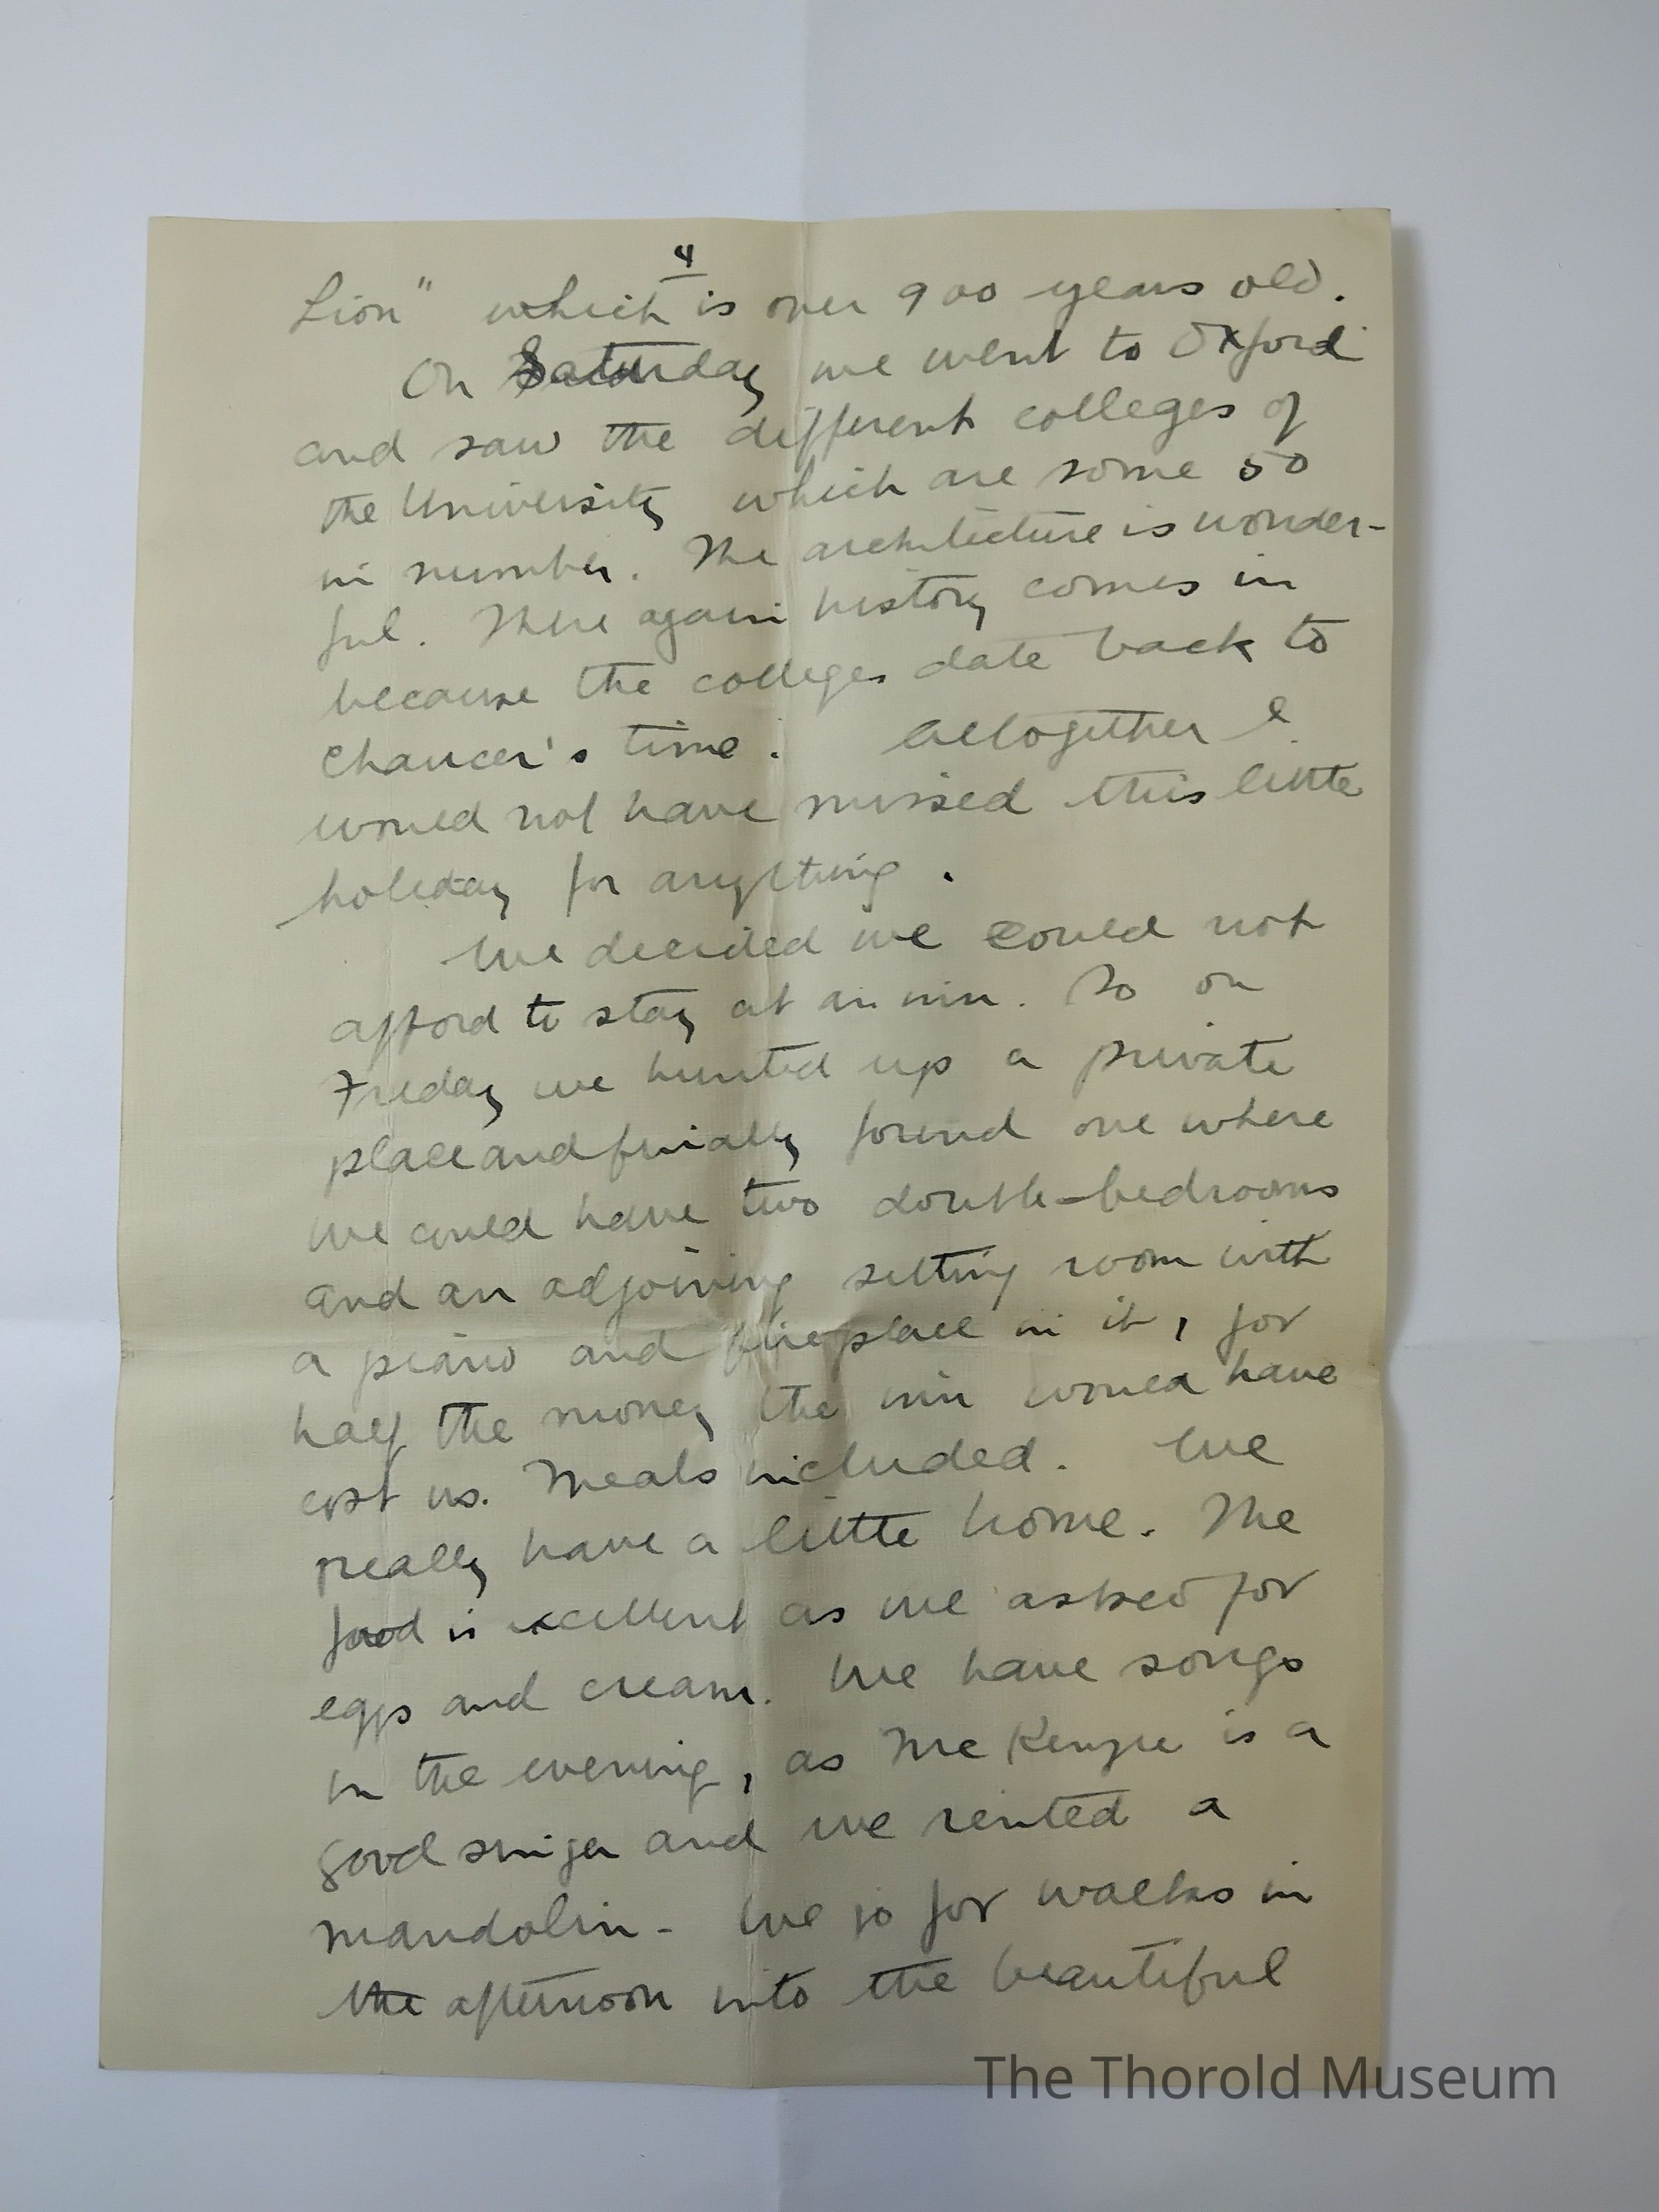 4
Lion" which is over 900 years old.
On Saturday we went to Oxford
and saw the different colleges of
the University which are some 50
in number. The architecture is wonder-
ful. There again history comes in
because the colleges date back to
Chaucer's time. Altogether I
would not have missed this little
holiday for anything.
We decided we could not
afford to stay at an inn. So on
Friday we hunted up a private
place and finally found one where
we could have two double-bedrooms
and an adjoining sitting room with
a piano and fireplace in it, for
half the money the inn would have
cost us. Meals included. We
really have a little home. The
food is excellent as we asked for
eggs and cream. We have songs
in the evening, as McKenzie is a
good singer and we rented a
mandolin - We go for walks in
the afternoon into the beautiful
The Thorold Museum